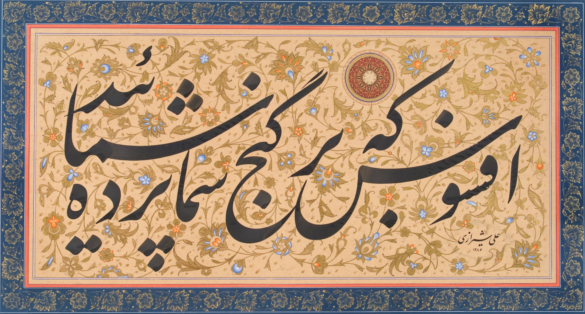 افسوس که بر گنج شما پرده شمائید
علی شیرازی